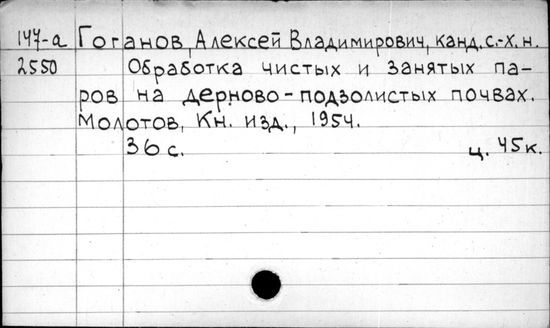 147-а Гоганов, Алексей Владимирович, канд. с.-х. н.
2550 Обработка чистых и занятых па-
ров на дерново-подзолистых почвах.
Молотов, Кн. изд., 1954.
36 с. ц. 45 к.